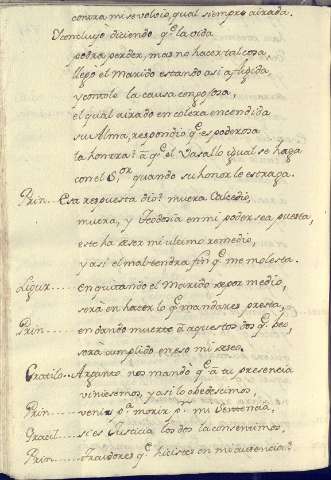 contra mi se volvio, qual siempre airada.
Y concluyo, diciendo, q.e la vida
podra perder, mas no hacer tal cosa,
llegò el marido estando asi afligida
y contole la causa congojosa,
el qual airado en colera encendida
su Alma, respondio q.e es poderosa
la honrra: à q.e el Vasallo igual se haga
con el S.or quando su honor le estraga.
Prin... Esa respuesta dio? muera Calcedio,
muera, y Teodosia en mi poder sea puesta,
esto ha de ser mi ultimo remedio,
y asi el mal tendra fin q.e me molesta.
Ligur... en quitando el Marido de por medio,
serà en hacer lo q.e mandares presta,
Prin... en dando muerte à aquestos dos q.e veo,
serà cumplido en eso mi deseo.
Cratilo... Arpanto nos mandò q.e à tu presencia
viniesemos, y asi lo obedecimos,
Prin... venis p.a morir p.r mi Sentencia.
Cratil... si es Justicia los dos la consentimos,
Prin... Traidores q.e hicistes en mi audiencia?